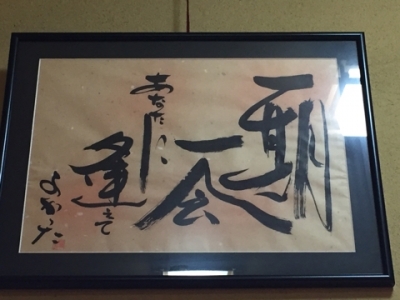 一期
一会
あなたに
逢えて
よかった